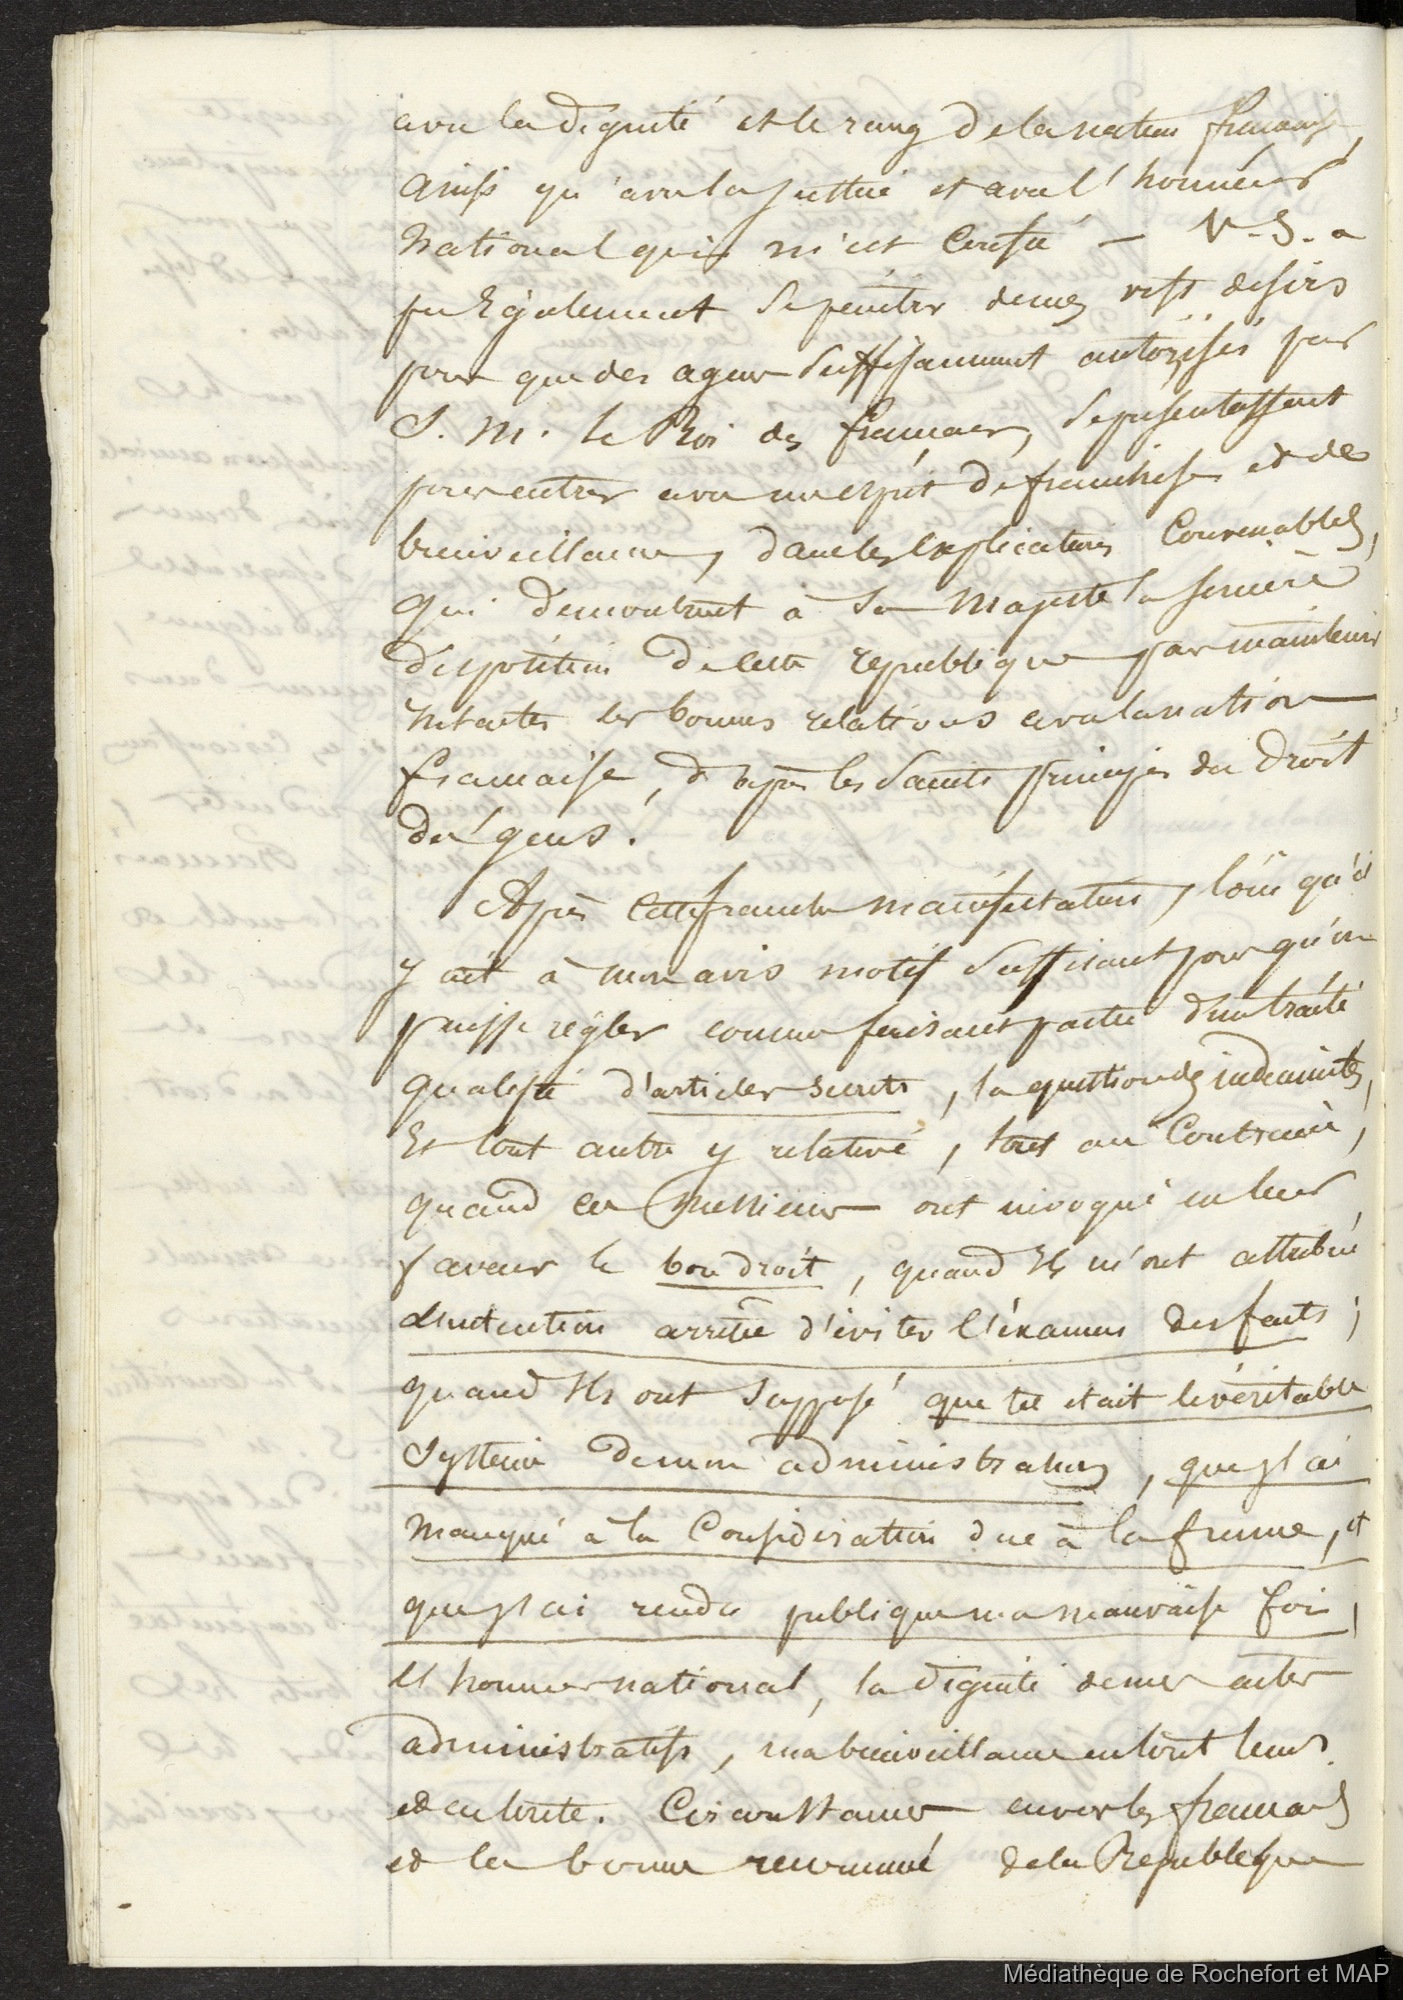 avec la dignité et le rang de la nation française,
ainsi qu'avec la justice et avec l'honneur
national qui m'est confié — V. S. a
pu également se pénétrer de mes vifs desirs
pour que des agens suffisamment autorisés par
S. M. le Roi des français, se présentassent
pour entrer avec un esprit de franchise et de
bienveillance, dans les explications convenables,
qui démontrent à Sa Majesté la sincère
disposition de cette république par maintenir
intactes les bonnes relations avec la nation
française, d'après les saints principes du droit
des gens.
Après cette franche manifestation, loin qu'il
y ait à mon avis motif suffisant pour qu'on
puisse régler comme faisant partie d'un traité
qualifié d'articles secrets, la question des indemnités,
Et tout autre y relative, tout au contraire,
quand ces Messieurs ont invoqué en leur
faveur le bon droit, quand Ils m'ont attribué
l'intention arrêtée d'éviter l'examen des faits;
quand Ils ont supposé que tel était le véritable
Système de mon administration, que j'ai
manqué à la Considération due à la france, et
que j'ai rendu publique ma mauvaise foi,
l'honneur national, la dignité de mes actes
administratifs, ma bienveillance en tout tems
et en toute. Circonstance envers les français
et la bonne renommé de la République
Médiathèque de Rochefort et MAP